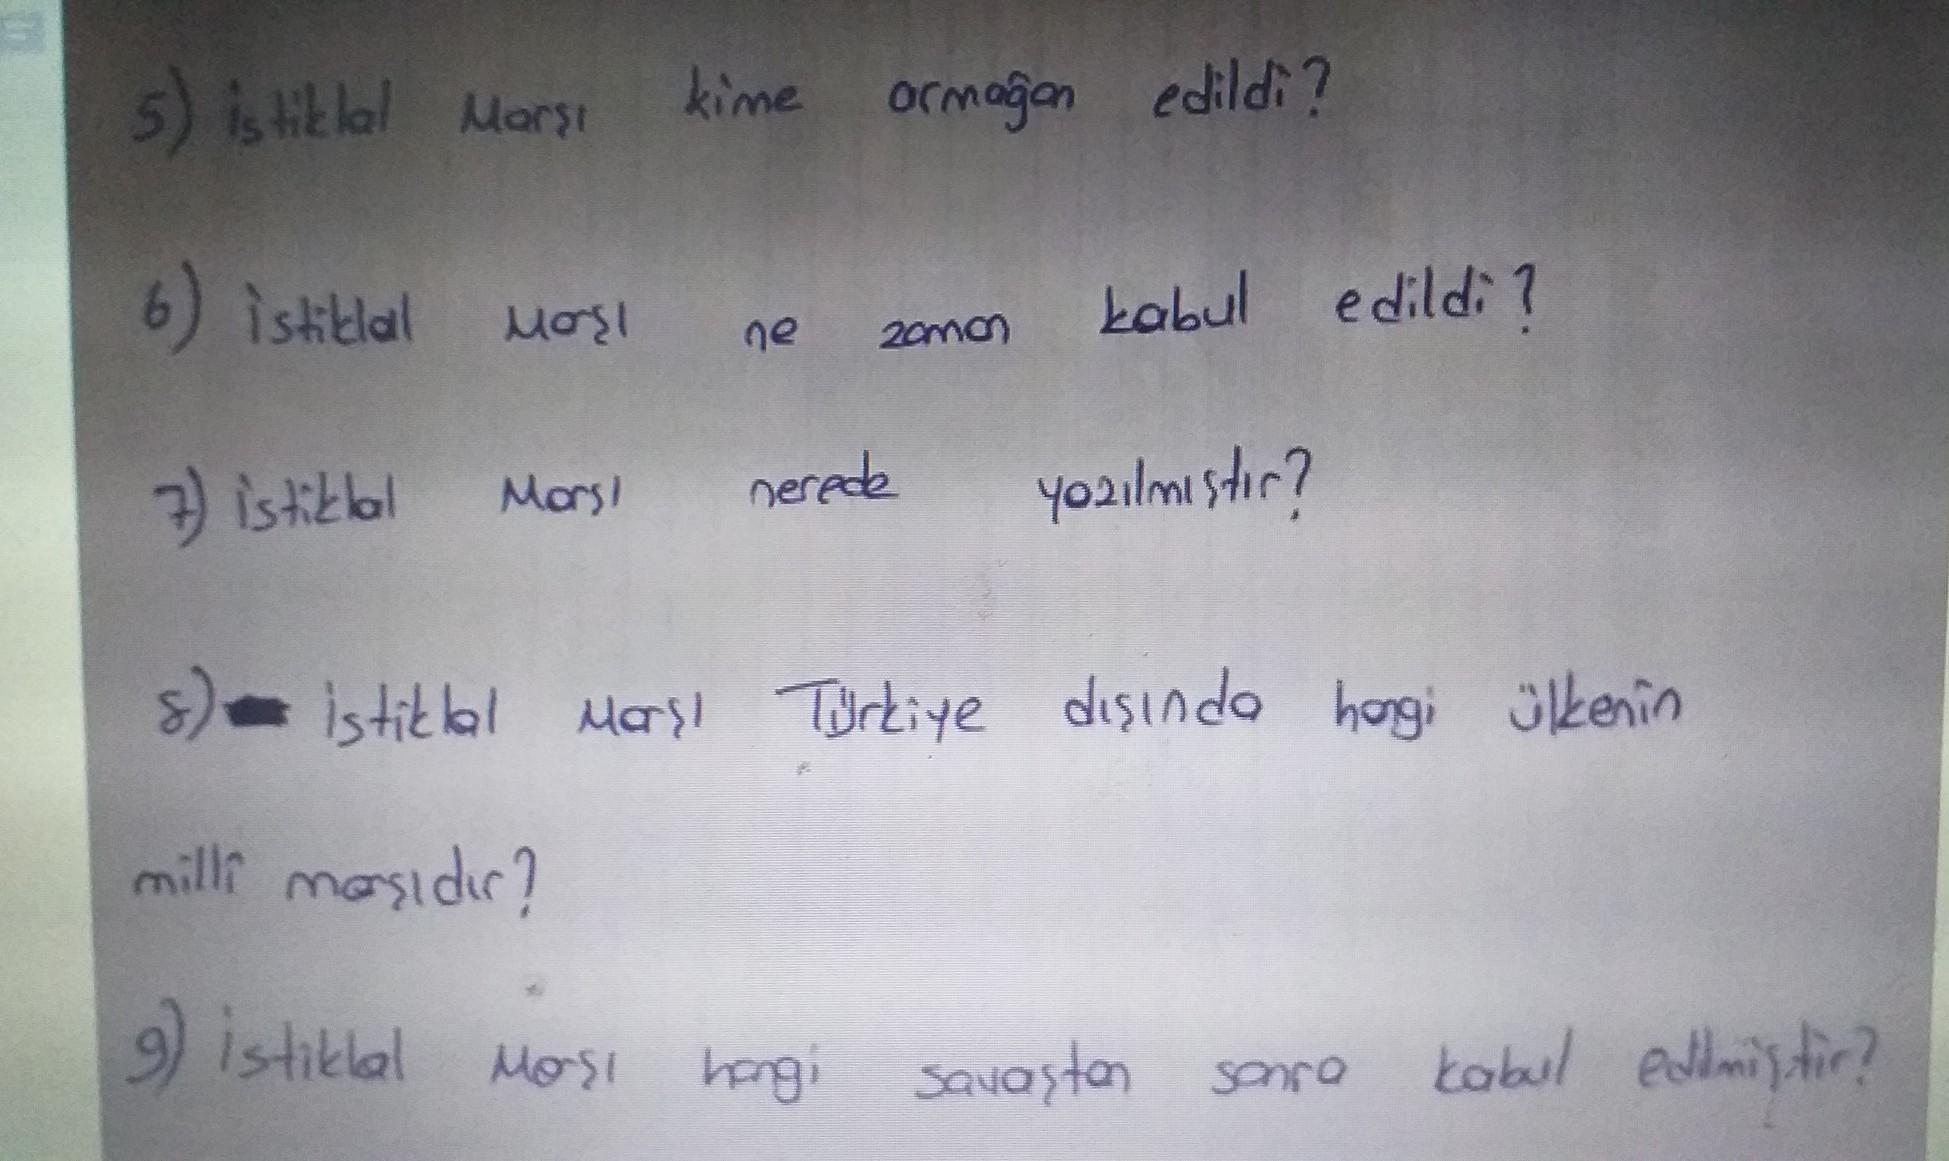 5) İstiklal Marşı kime armağan edildi?
6) İstiklal Marşı ne zaman kabul edildi?
7) İstiklal Marşı nerede yazılmıştır?
8) İstiklal Marşı Türkiye dışında hangi ülkenin
millî marşıdır?
9) İstiklal Marşı hangi savaştan sonra kabul edilmiştir?